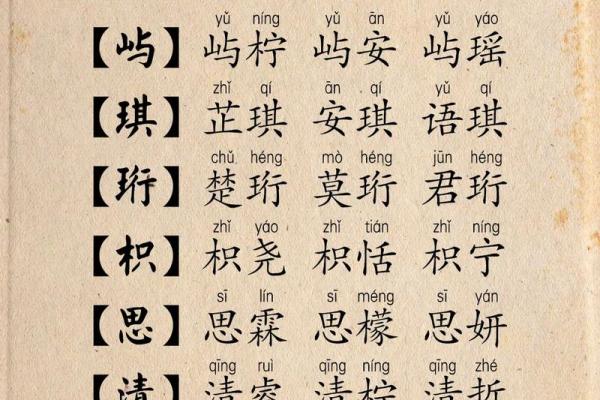 yǔ níng yǔ ān yǔ yáo
【屿】 屿柠 屿安 屿瑶
zhǐ qí ān qí yǔ qí
【琪】 芷琪 安琪 语琪
chǔ héng mò héng jūn héng
【珩】 楚珩 莫珩 君珩
zhǐ yáo zhǐ tián zhǐ níng
【枳】 枳尧 枳恬 枳宁
sī lín sī méng sī yán
【思】 思霖 思檬 思妍
qīng ruì qīng níng qīng zhé
【清】 清睿 清柠 清哲